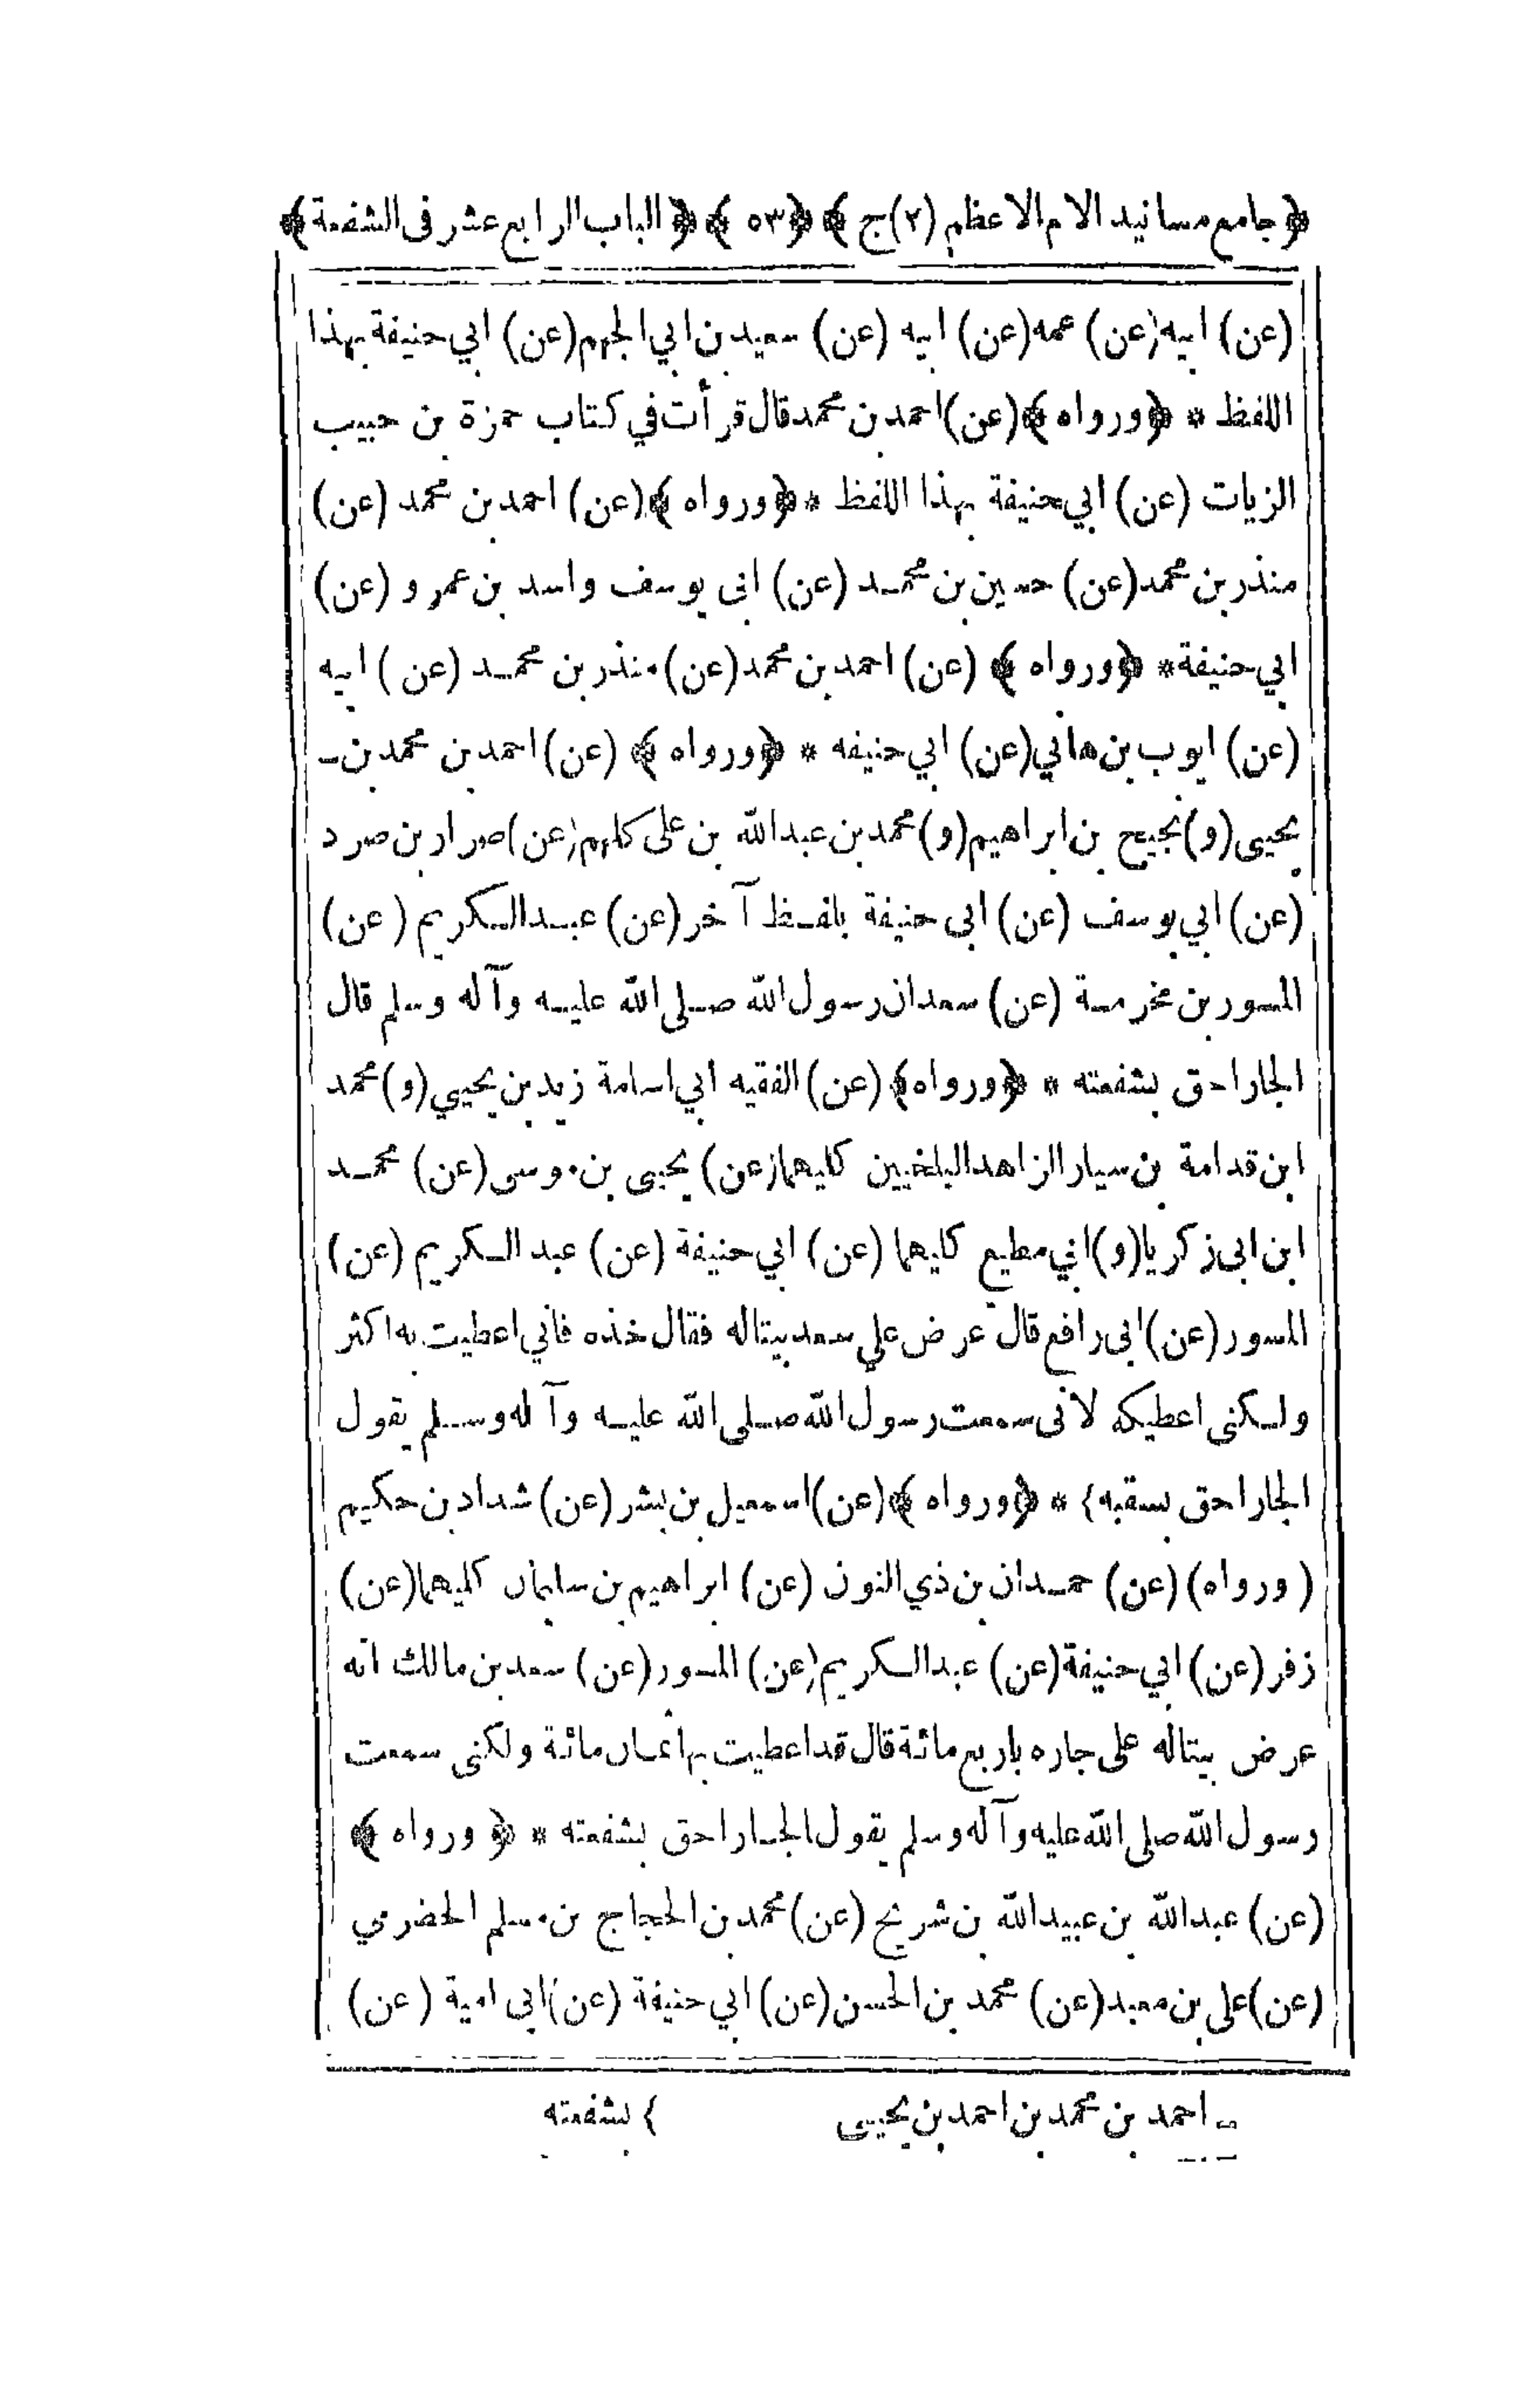 ﴿ جامع مسانيد الامام الاعظم (٢) ج ﴾ ﴿ ٥٣ ﴾ ﴿ الباب الرابع عشر فى الشفعة ﴾
(عن) ابيه (عن) عمه (عن) ابيه (عن) سعيد بن ابي الجهم (عن) ابي حنيفة بهذا
اللفظ * ﴿ ورواه ﴾ (عن) احمد بن محمد قال قرأت في كتاب حمزة بن حبيب
الزيات (عن) ابي حنيفة بهذا اللفظ * ﴿ ورواه ﴾ (عن) احمد بن محمد (عن)
منذر بن محمد (عن) حسين بن محمد (عن) ابى يوسف واسد بن عمرو (عن)
ابي حنيفة * ﴿ ورواه ﴾ (عن) احمد بن محمد (عن) منذر بن محمد (عن) ابيه
(عن) ايوب بن هاني (عن) ابي حنيفه * ﴿ ورواه ﴾ (عن) احمد بن محمد بن ـ
يحيى (و) نجيح بن ابراهيم (و) محمد بن عبدالله بن على كلهم (عن) ضرار بن صرد
(عن) ابي يوسف (عن) ابى حنيفة بلفظ آخر (عن) عبدالكريم (عن)
المسور بن مخرمة (عن) سعد ان رسول الله صلى الله عليه وآله وسلم قال
الجار احق بشفعته * ﴿ ورواه ﴾ (عن) الفقيه ابي اسامة زيد بن يحيي (و) محمد
ابن قدامة بن سيار الزاهد البلخيين كليهما (عن) يحيى بن موسى (عن) محمد
ابن ابى زكريا (و) ابي مطيع كليهما (عن) ابي حنيفة (عن) عبد الكريم (عن)
المسور (عن) ابى رافع قال عرض علي سعد بيتاله فقال خذه فاني اعطيت به اكثر
ولكنى اعطيكه لانى سمعت رسول الله صلى الله عليه وآله وسلم يقول
الجار احق بسقبه } * ﴿ ورواه ﴾ (عن) اسمعيل بن بشر (عن) شداد بن حكيم
(ورواه) (عن) حمدان بن ذي النون (عن) ابراهيم بن سليمان كليهما (عن)
زفر (عن) ابي حنيفة (عن) عبدالكريم (عن) المسور (عن) سعد بن مالك انه
عرض بيتاله على جاره باربع مائة قال قد اعطيت بها ثمان مائة ولكنى سمعت
رسول الله صلى الله عليه وآله وسلم يقول الجار احق بشفعته * ﴿ ورواه ﴾
(عن) عبدالله بن عبيدالله بن شريح (عن) محمد بن الحجاج بن مسلم الحضرمي
(عن) على بن معبد (عن) محمد بن الحسن (عن) ابي حنيفة (عن) ابى امية (عن)
ـ احمد بن محمد بن احمد بن يحيى } بشفعته